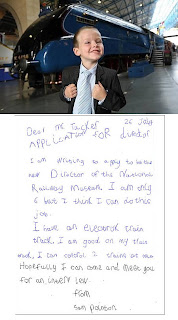 Dear Mr Tucker 26 July
APPLICATION FOR director
I am writing to apply to be the
new Director of the National
Railway Museum. I am only
6 but I think I can do this
job.
I have an electric train
track. I am good on my train
track. I can control 2 trains at once
Hopefully I can come and meet you
for an interview
from
Sam Pointon